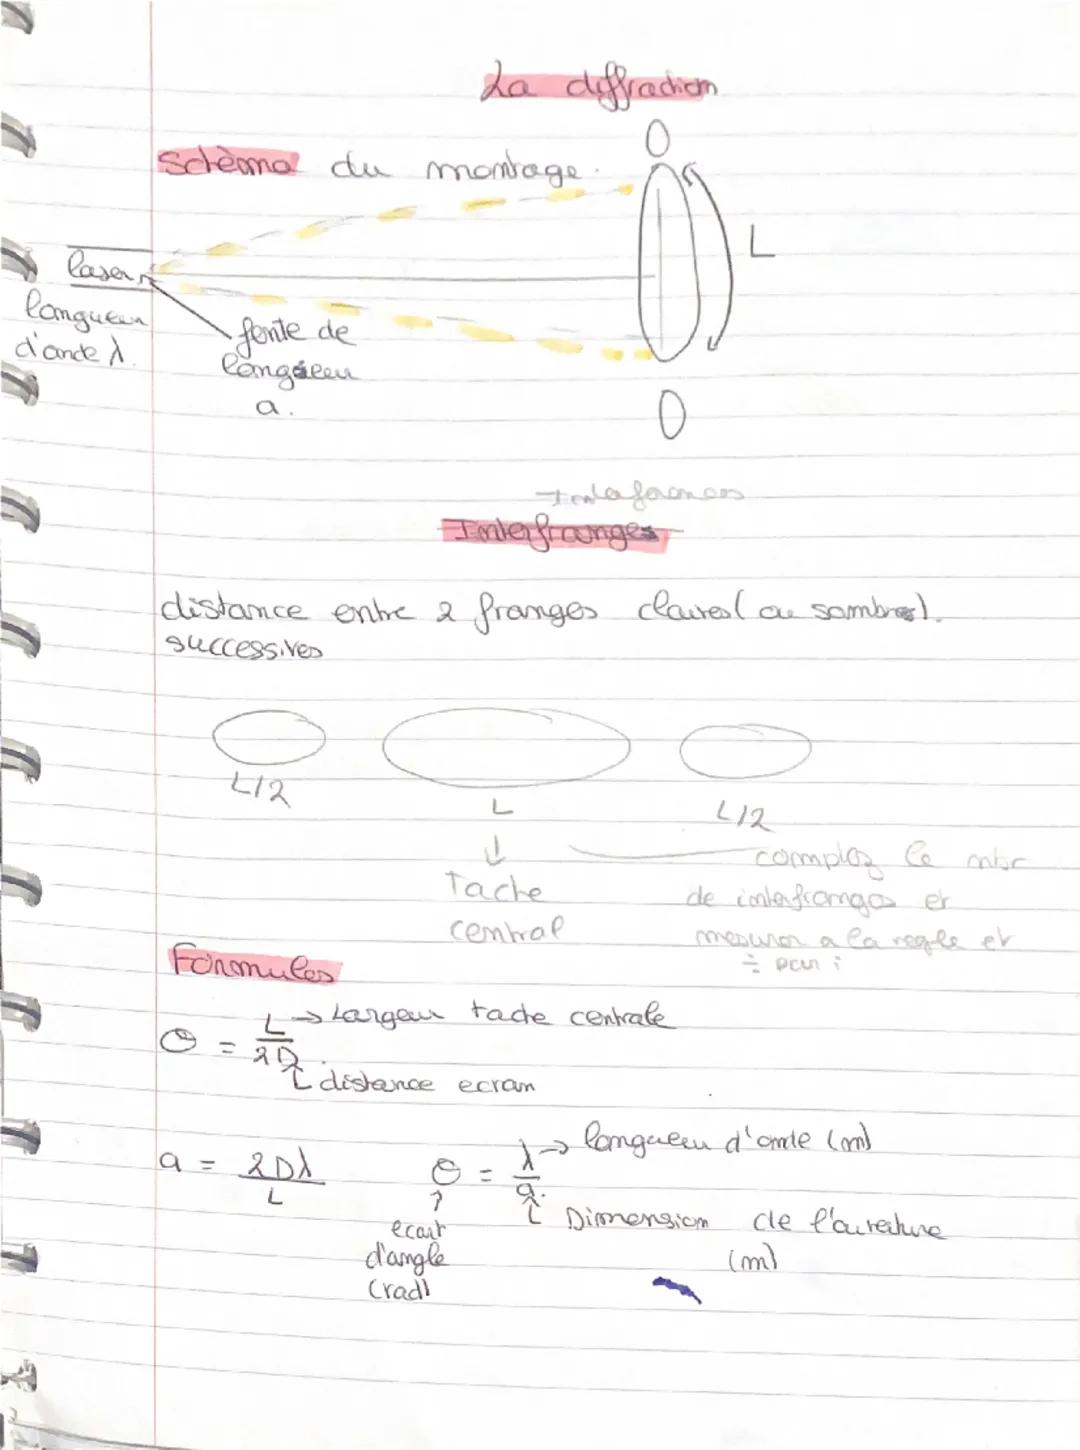 La diffraction
Schèma du montage.
L
laser
longueur
d'onde λ.
fente de
longueur
a.
Interferences
Interfranges
distance entre 2 franges claires (ou sombres).
successives
L/2
L
L/2
↓
Tache
central
comptez le nbr
de interfranges et
mesurer a la regle et
÷ par i
Formules
θ = L/2D
→ Largeur tache centrale
distance ecran
a = 2Dλ/L
θ = λ/a.
→ longueur d'onde (m)
Dimension de l'ouverture
(m)
ecart
d'angle
(rad)